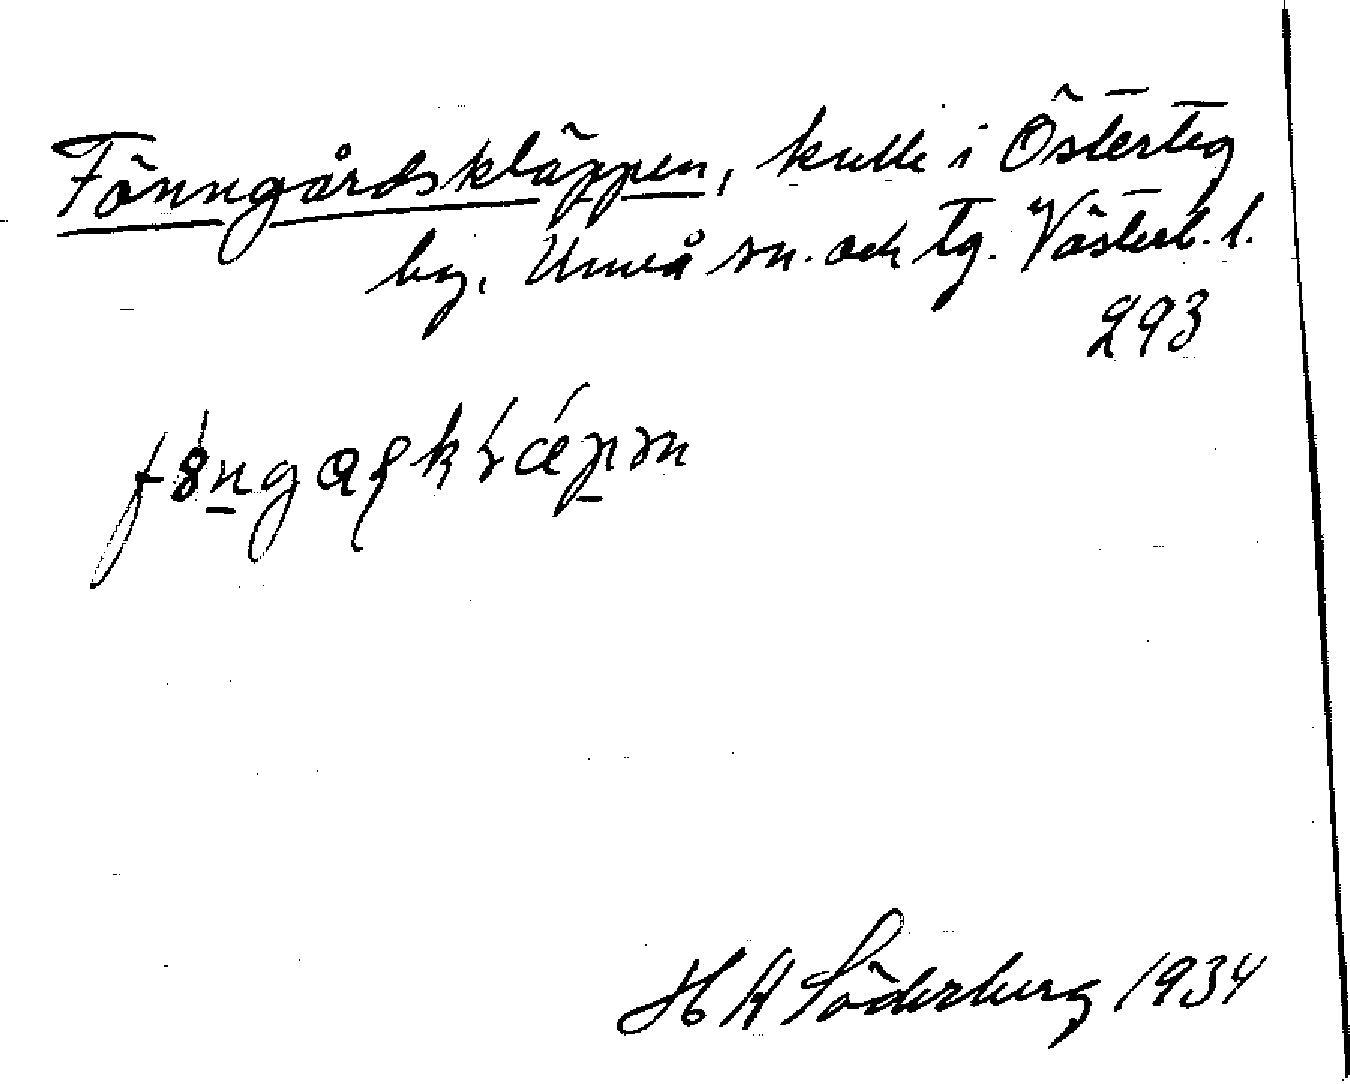 Fönngårdskläppen, kulle i Österteg
by. Umeå sn. och tg. Västerb. l.
293
H A Söderberg 1934